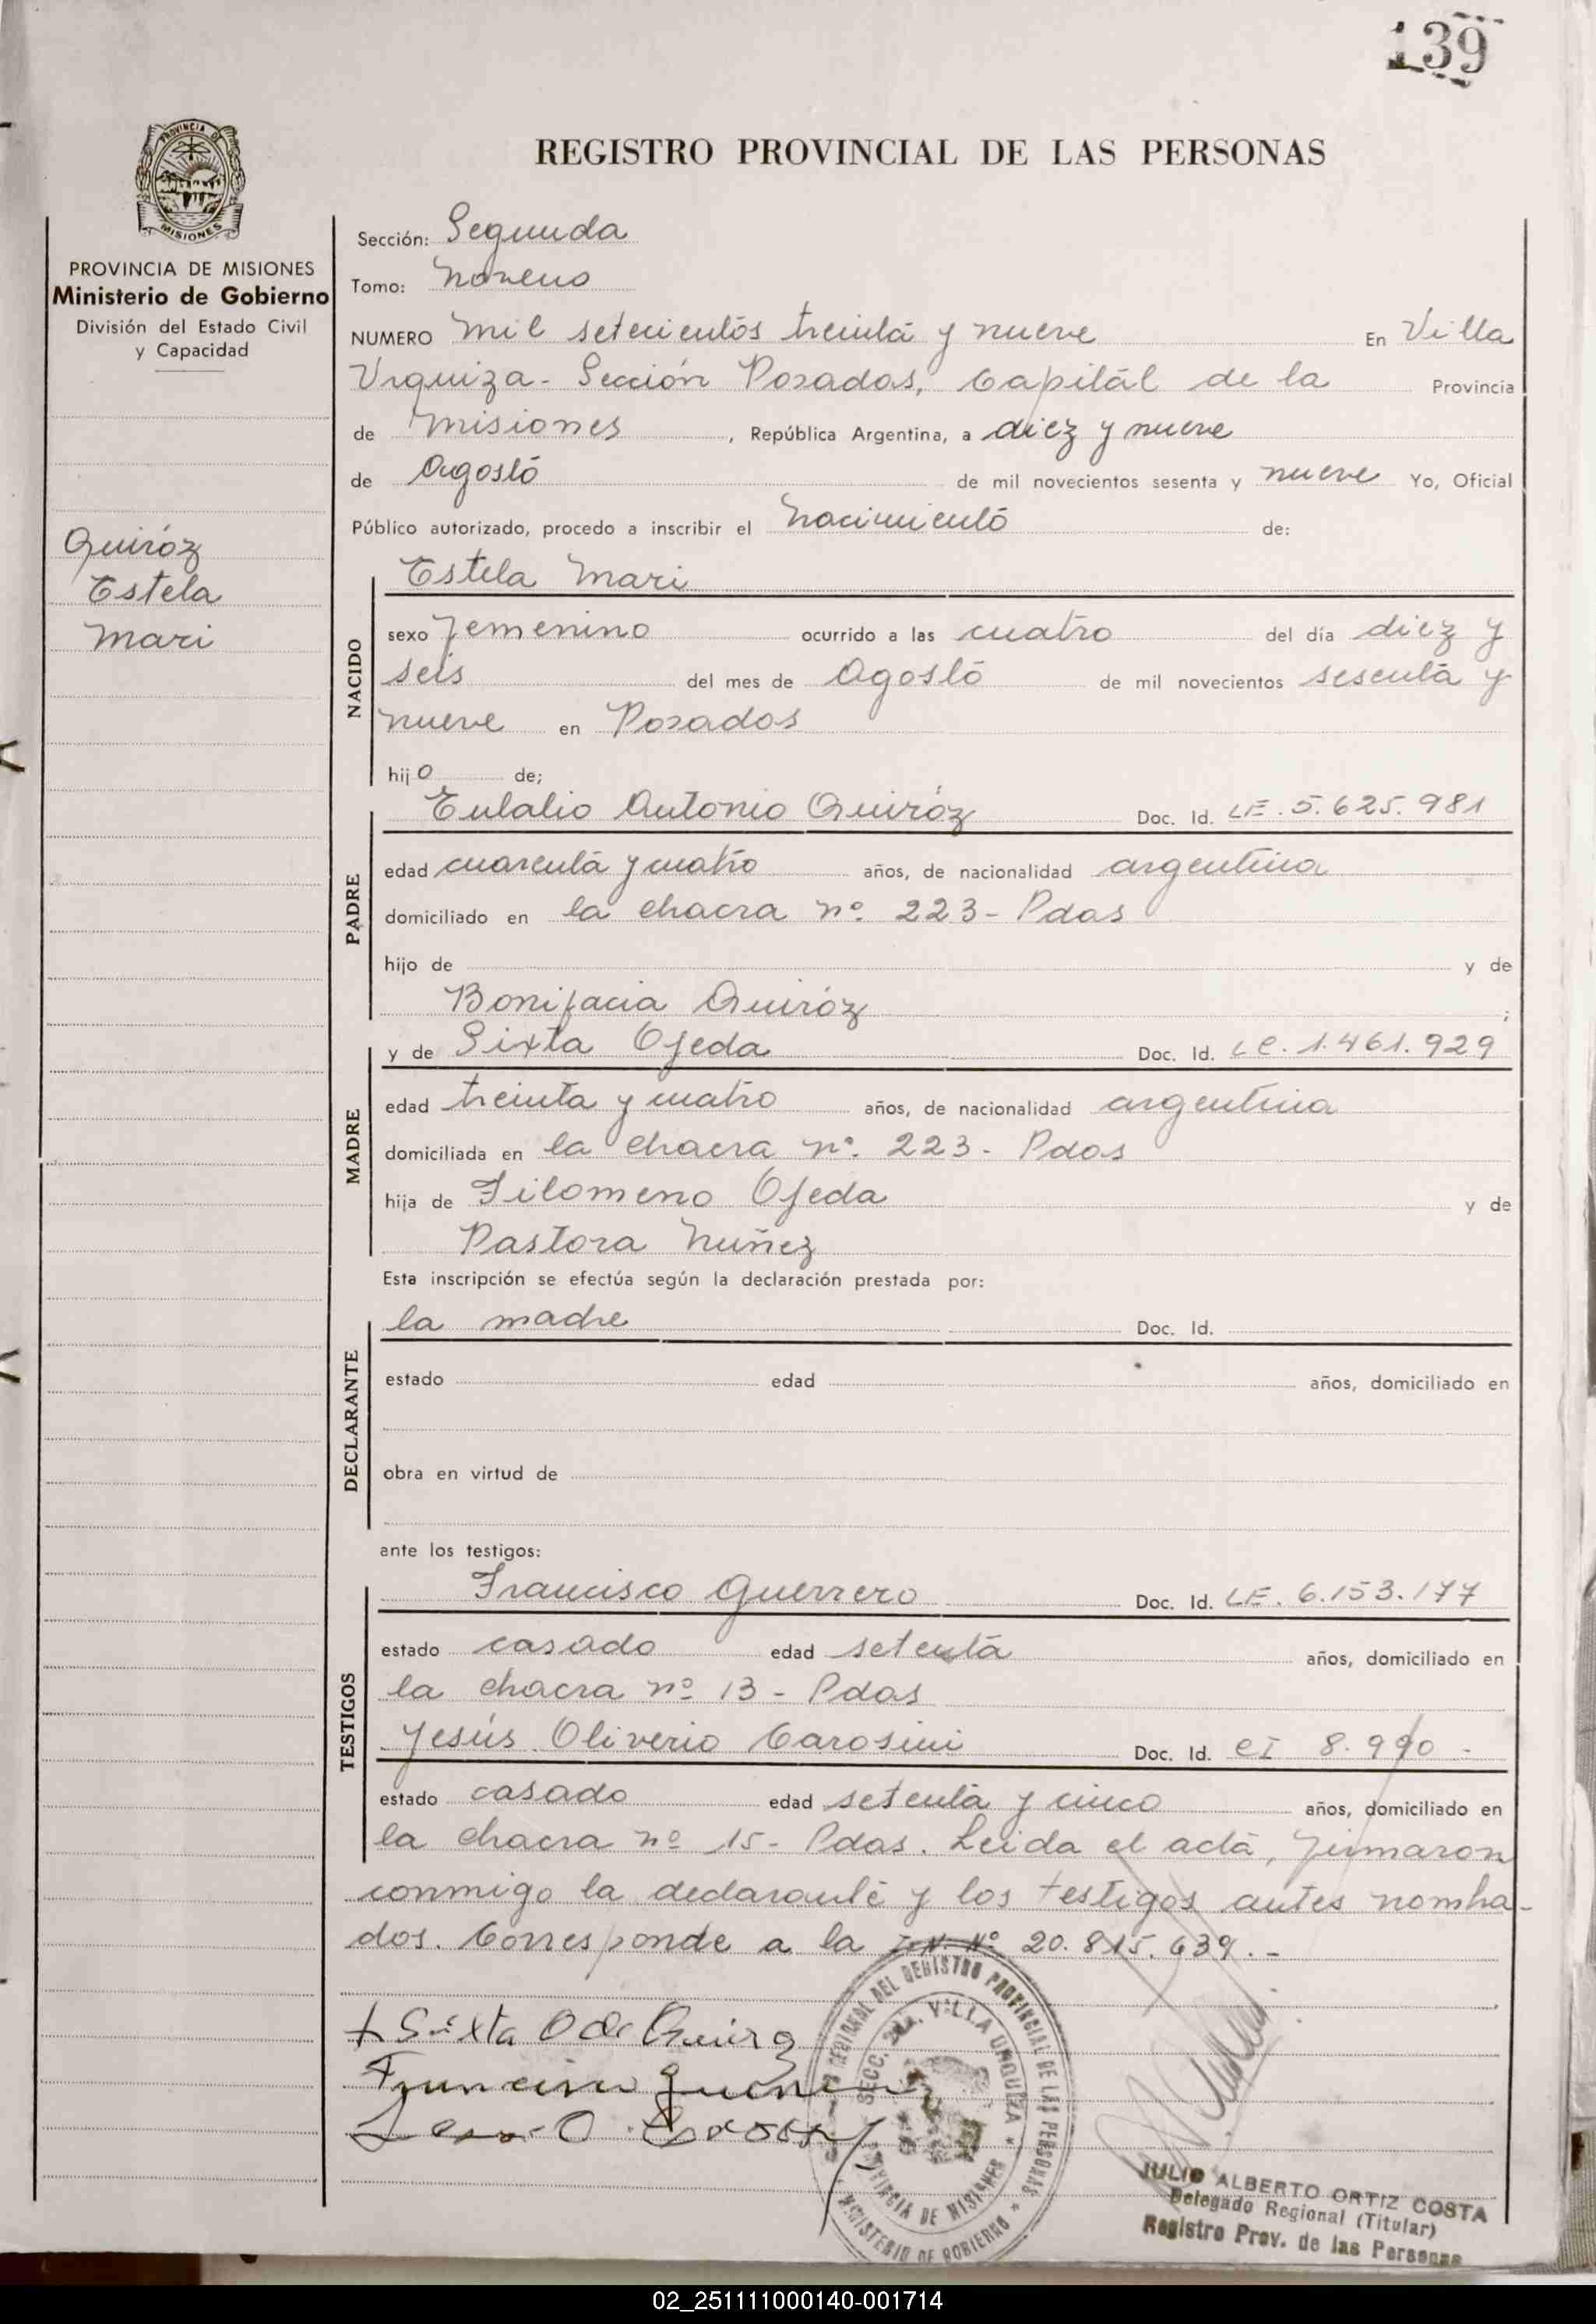 139
PROVINCIA DE
MISIONES
REGISTRO PROVINCIAL DE LAS PERSONAS
PROVINCIA DE MISIONES
Ministerio de Gobierno
División del Estado Civil
y Capacidad
Quiróz
Estela
Mari
Sección: Segunda
Tomo: Noveno
NUMERO Mil setecientos treinta y nueve En Villa
Urquiza - Sección Posadas, Capital de la Provincia
de Misiones, República Argentina, a diez y nueve
de Agosto de mil novecientos sesenta y nueve Yo, Oficial
Público autorizado, procedo a inscribir el Nacimiento de:
NACIDO
Estela Mari
sexo Femenino ocurrido a las cuatro del día diez y
seis del mes de Agosto de mil novecientos sesenta y
nueve en Posadas
hijo de;
PADRE
Eulalio Antonio Quiróz Doc. Id. LE. 5.625.981
edad cuarenta y cuatro años, de nacionalidad argentina
domiciliado en la chacra nº 223 - Pdas
hijo de y de
Bonifacia Quiróz ;
MADRE
y de Sixta Ojeda Doc. Id. LC. 1.461.929
edad treinta y cuatro años, de nacionalidad argentina
domiciliada en la chacra nº. 223 - Pdas
hija de Filomeno Ojeda y de
Pastora Nuñez
Esta inscripción se efectúa según la declaración prestada por:
DECLARANTE
la madre Doc. Id.
estado edad años, domiciliado en
obra en virtud de
ante los testigos:
TESTIGOS
Francisco Guerrero Doc. Id. LE. 6.153.177
estado casado edad setenta años, domiciliado en
la chacra nº 13 - Pdas
Jesús Oliverio Carosini Doc. Id. CI 8.990 -
estado casado edad setenta y cinco años, domiciliado en
la chacra nº 15 - Pdas. Leida el acta, firmaron
conmigo la declarante y los testigos antes nombra-
dos. Corresponde a la Nº 20.815.639. -
+ Sixta O de Quiroz
Francisco Guerrero
REGIONAL DEL REGISTRO PROVINCIAL DE LAS PERSONAS
SECC. 2da. VILLA URQUIZA
PROVINCIA DE MISIONES
MINISTERIO DE GOBIERNO
JULIO ALBERTO ORTIZ COSTA
Delegado Regional (Titular)
Registro Prov. de las Personas
02_251111000140-001714